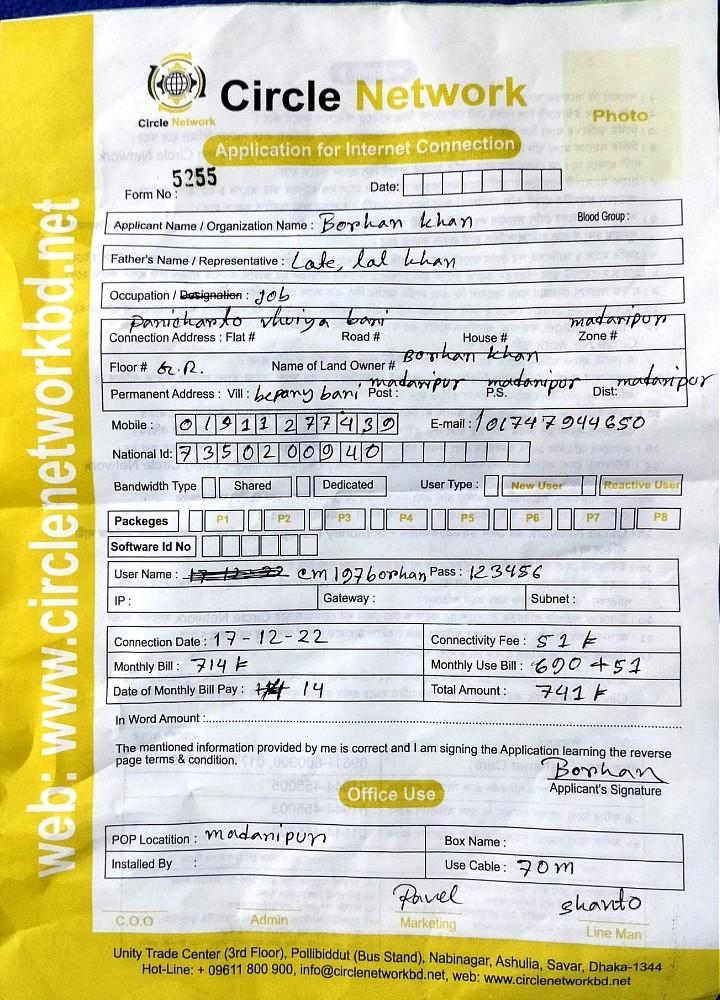 Circle Network
Circle Network
Photo
Application for Internet Connection
Form No : 5255
Date:
Applicant Name / Organization Name : Borhan khan Blood Group :
Father's Name / Representative : Late, lal khan
Occupation / Designation : Job
Panichanto vhuiya bari madaripur
Connection Address : Flat # Road # House # Zone #
Floor # G.R. Name of Land Owner # Borhan khan
Permanent Address : Vill : bepary bari Post : madaripur P.S. madaripur Dist: madaripur
Mobile : 01911277439 E-mail : 01747944650
National Id: 7350200940
Bandwidth Type Shared Dedicated User Type : New User Reactive User
Packeges P1 P2 P3 P4 P5 P6 P7 P8
Software Id No
User Name : 17-12-22 cm197borhan Pass : 123456
IP : Gateway : Subnet :
Connection Date : 17-12-22 Connectivity Fee : 51 ৳
Monthly Bill : 714 ৳ Monthly Use Bill : 690 + 51
Date of Monthly Bill Pay : 14 Total Amount : 741 ৳
In Word Amount :
The mentioned information provided by me is correct and I am signing the Application learning the reverse
page terms & condition.
Borhan
Applicant's Signature
Office Use
POP Locatition : madaripur Box Name :
Installed By : Use Cable : 70 m
Pavel shanto
C.O.O Admin Marketing Line Man
Unity Trade Center (3rd Floor), Pollibiddut (Bus Stand), Nabinagar, Ashulia, Savar, Dhaka-1344
Hot-Line: + 09611 800 900, info@circlenetworkbd.net, web: www.circlenetworkbd.net
web: www.circlenetworkbd.net